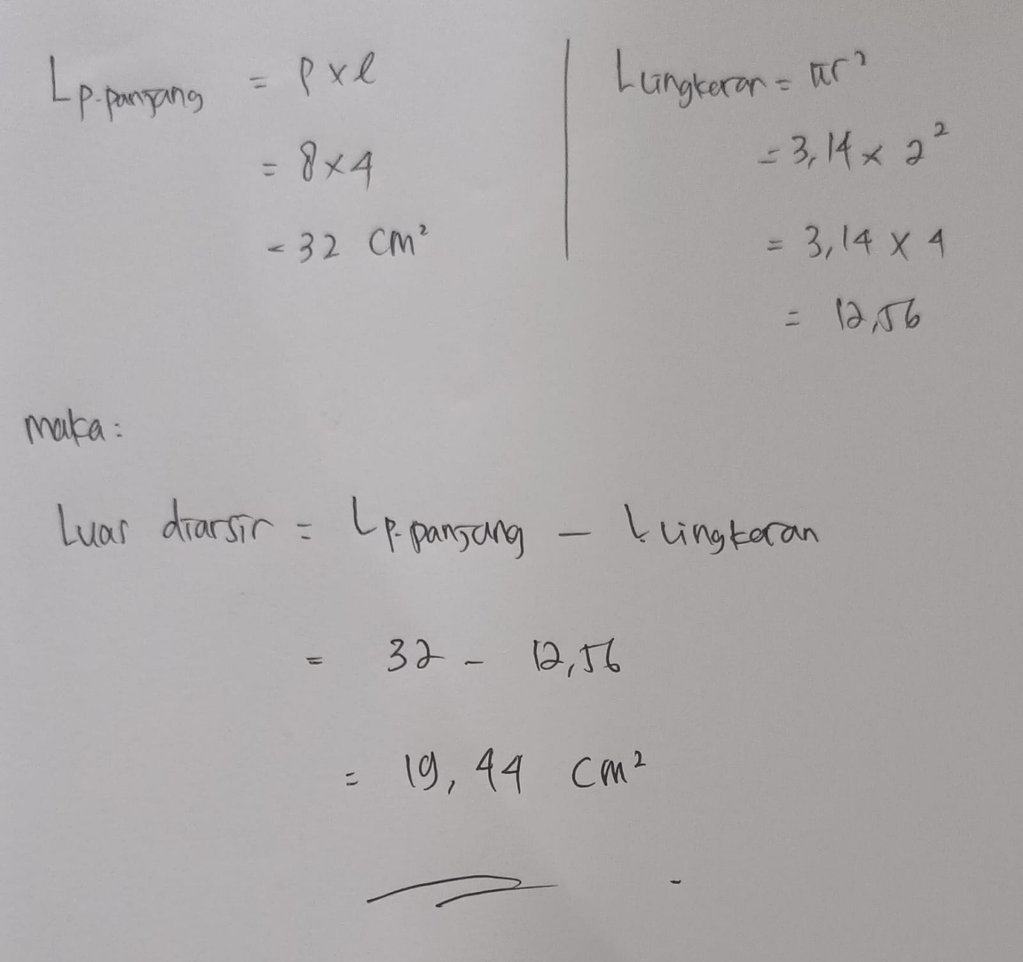 L p.panjang = p x l
= 8 x 4
= 32 cm²
L lingkaran = πr²
= 3,14 x 2²
= 3,14 x 4
= 12,56
maka:
Luas diarsir = L p.panjang – L lingkaran
= 32 – 12,56
= 19,44 cm²